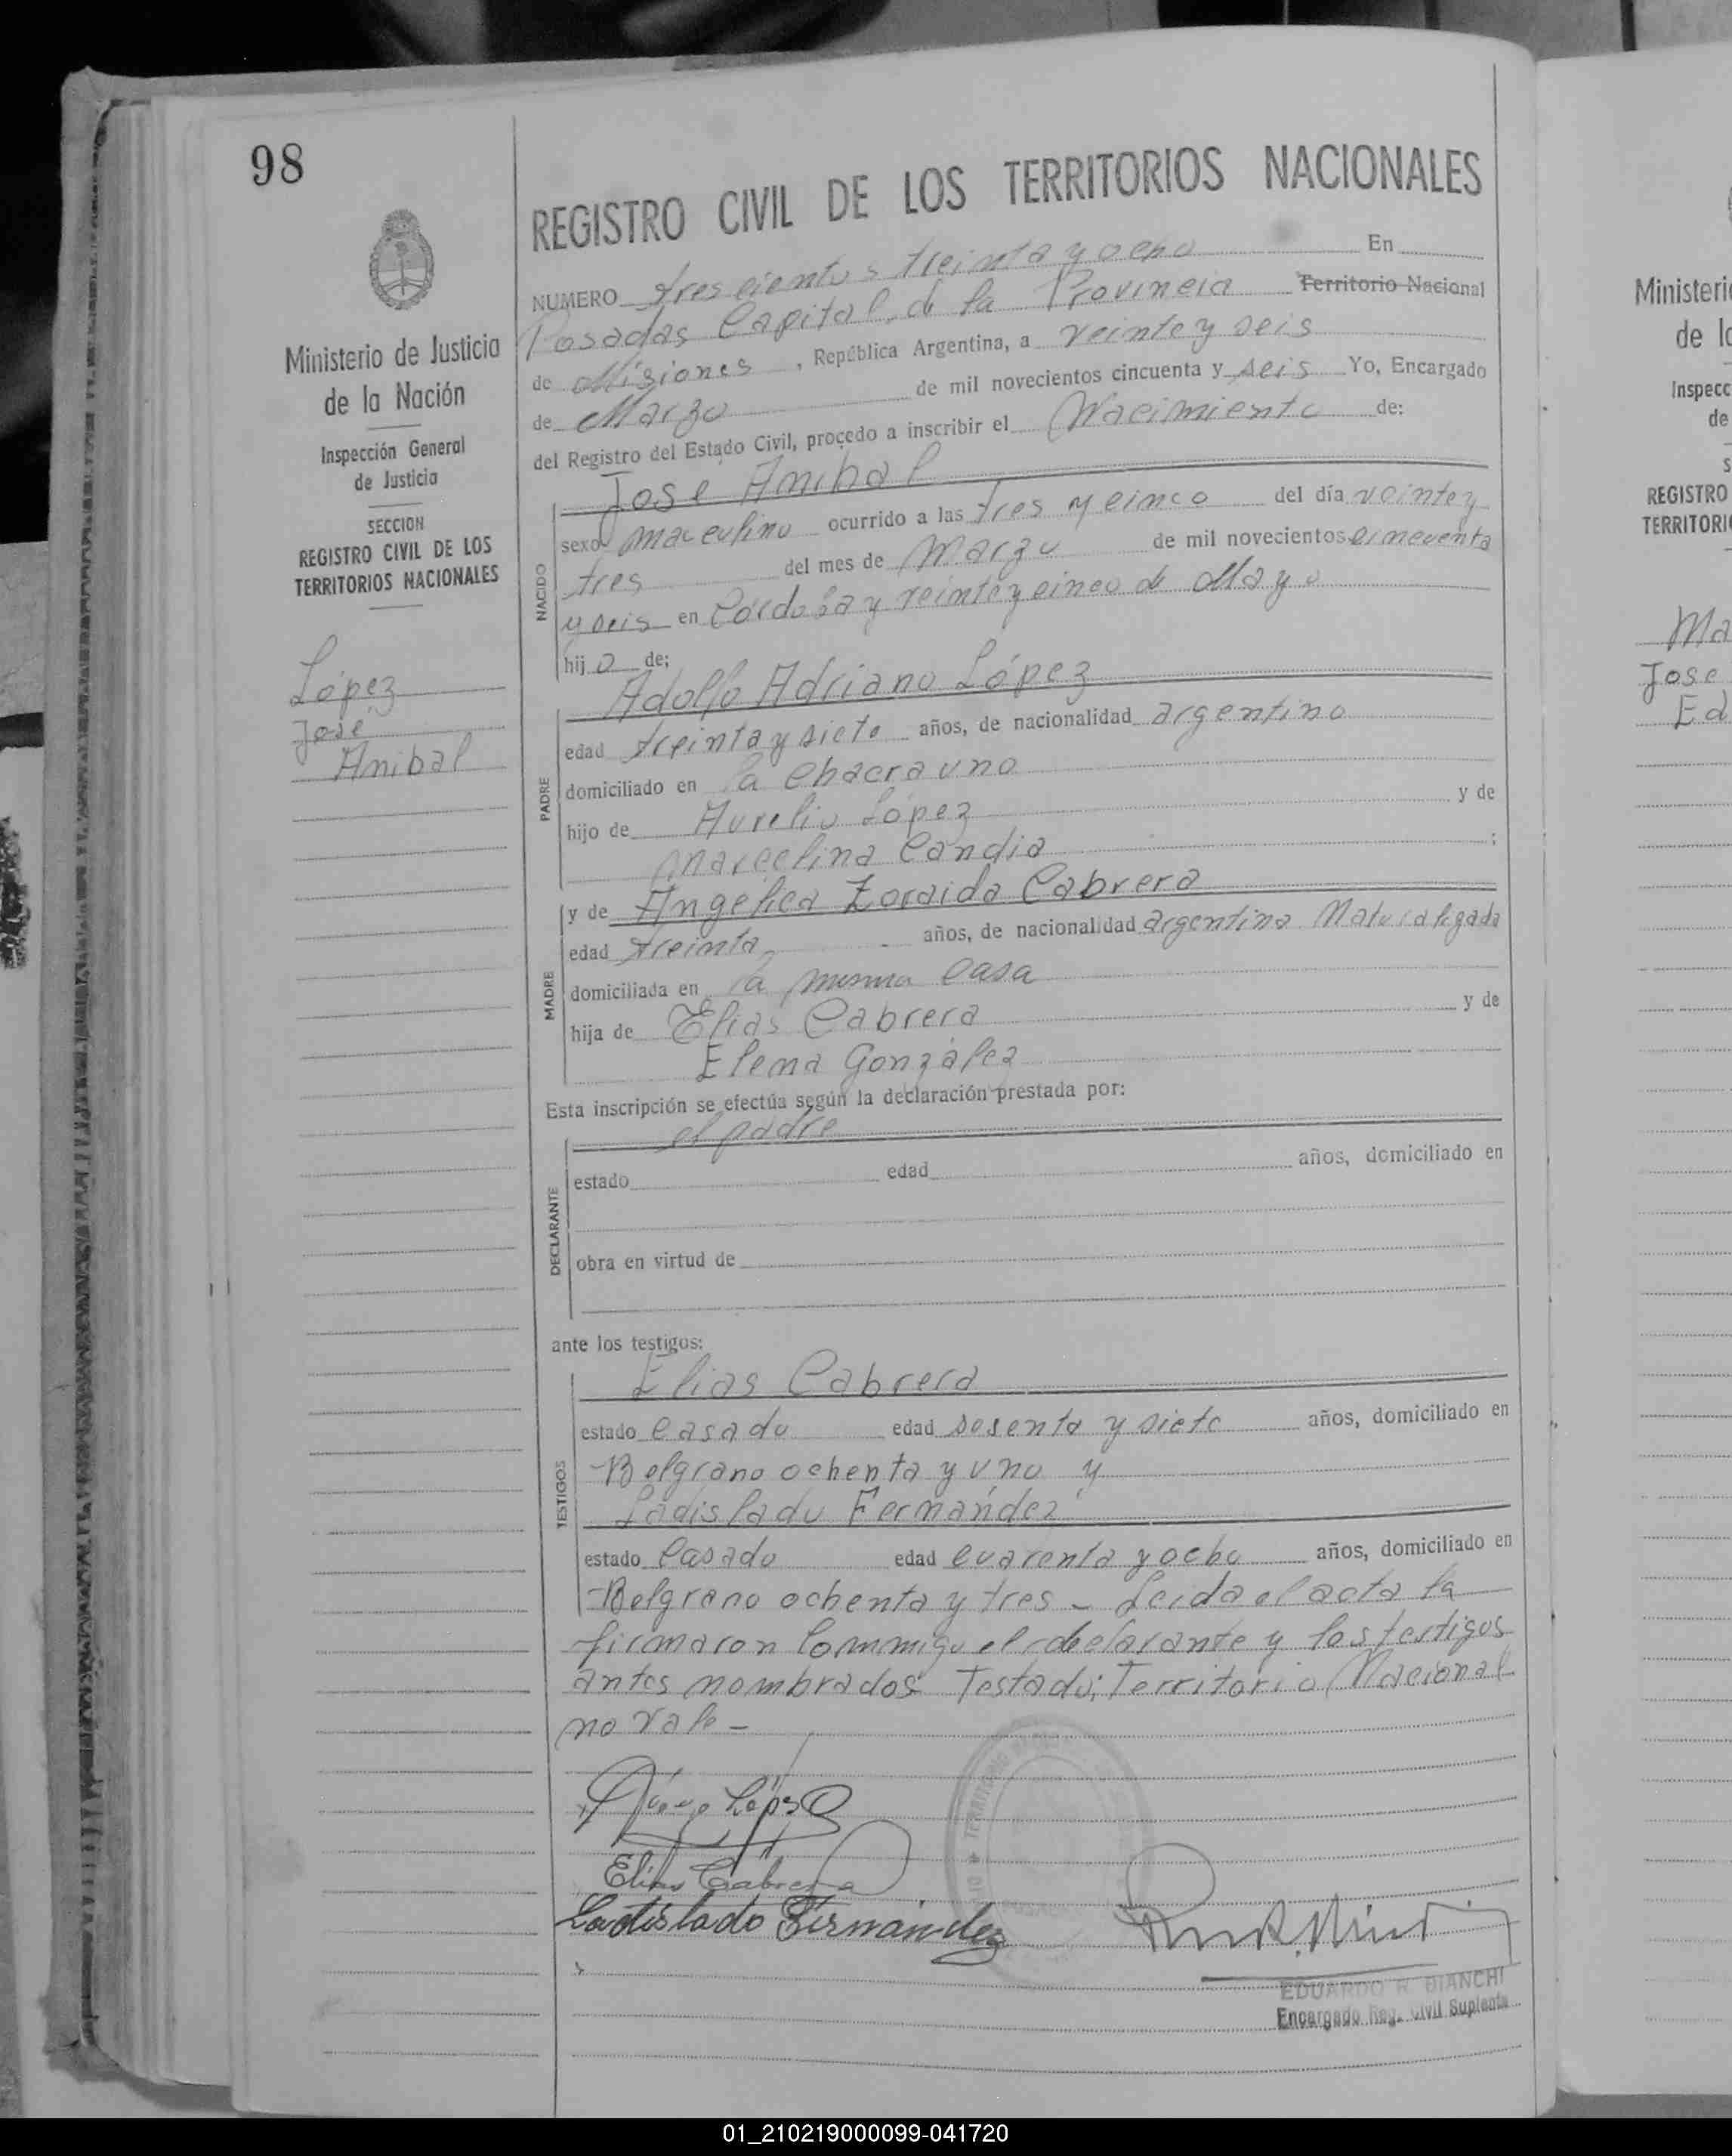 98
REGISTRO CIVIL DE LOS TERRITORIOS NACIONALES
Ministerio de Justicia
de la Nación
Inspección General
de Justicia
SECCION
REGISTRO CIVIL DE LOS
TERRITORIOS NACIONALES
López
José
Anibal
NUMERO trescientos treinta y ocho En
Posadas Capital de la Provincia Territorio Nacional
de Misiones, República Argentina, a veinte y seis
de Marzo de mil novecientos cincuenta y seis Yo, Encargado
del Registro del Estado Civil, procedo a inscribir el Nacimiento de:
NACIDO
Jose Anibal
sexo maculino ocurrido a las tres y cinco del día veinte y
tres del mes de Marzo de mil novecientos cincuenta
y seis en Córdoba y veinte y cinco de Mayo
hijo de;
PADRE
Adolfo Adriano López
edad treinta y siete años, de nacionalidad argentino
domiciliado en la chacra uno
hijo de Aurelio López y de
Marcelina Candia ;
MADRE
y de Angélica Zoraida Cabrera
edad treinta años, de nacionalidad argentina Naturalizada
domiciliada en la misma casa
hija de Elias Cabrera y de
Elena González
Esta inscripción se efectúa según la declaración prestada por:
DECLARANTE
el padre
estado edad años, domiciliado en
obra en virtud de
ante los testigos:
TESTIGOS
Elias Cabrera
estado casado edad sesenta y siete años, domiciliado en
Belgrano ochenta y uno y
Ladislado Fernández
estado casado edad cuarenta y ocho años, domiciliado en
Belgrano ochenta y tres - Leida el acta la
firmaron conmigo el declarante y los testigos
antes nombrados Testado; Territorio Nacional
no vale -
López
Elias Cabrera
Ladislado Fernández
EDUARDO R. BIANCHI
Encargado Reg. Civil Suplente
Ministeri
de l
Inspecc
de
S
REGISTRO
TERRITORI
Ma
Jose
Ed
01_210219000099-041720